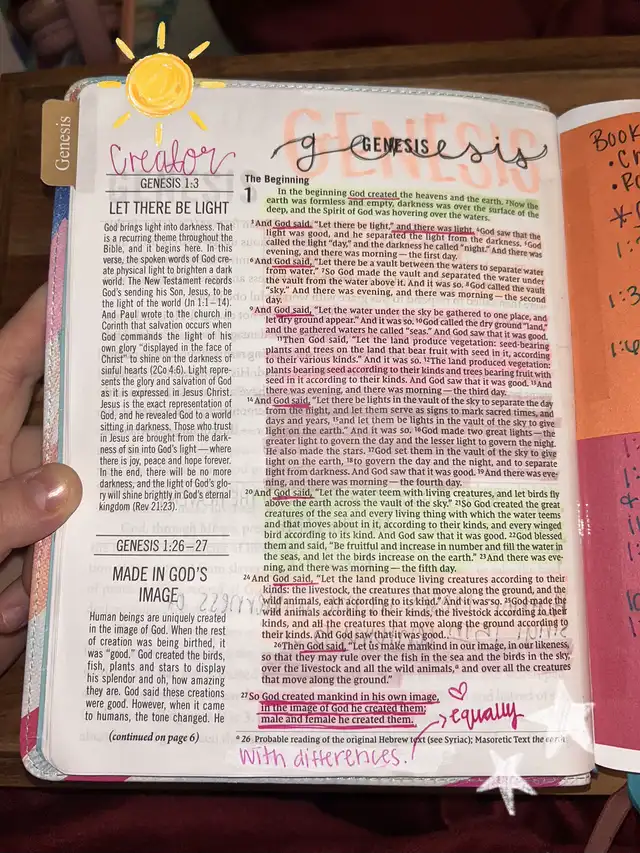 Genesis
creator
GENESIS 1:3
LET THERE BE LIGHT
God brings light into darkness. That
is a recurring theme throughout the
Bible, and it begins here. In this
verse, the spoken words of God cre-
ate physical light to brighten a dark
world. The New Testament records
God's sending his Son, Jesus, to be
the light of the world (Jn 1:1–14).
And Paul wrote to the church in
Corinth that salvation occurs when
God commands the light of his
own glory "displayed in the face of
Christ" to shine on the darkness of
sinful hearts (2Co 4:6). Light repre-
sents the glory and salvation of God
as it is expressed in Jesus Christ.
Jesus is the exact representation of
God, and he revealed God to a world
sitting in darkness. Those who trust
in Jesus are brought from the dark-
ness of sin into God's light — where
there is joy, peace and hope forever.
In the end, there will be no more
darkness, and the light of God's glo-
ry will shine brightly in God's eternal
kingdom (Rev 21:23).
GENESIS 1:26–27
MADE IN GOD'S
IMAGE
Human beings are uniquely created
in the image of God. When the rest
of creation was being birthed, it
was "good." God created the birds,
fish, plants and stars to display
his splendor and oh, how amazing
they are. God said these creations
were good. However, when it came
to humans, the tone changed. He
(continued on page 6)
GENESIS
genesis
GENESIS
The Beginning
1 In the beginning God created the heavens and the earth. 2Now the
earth was formless and empty, darkness was over the surface of the
deep, and the Spirit of God was hovering over the waters.
3And God said, "Let there be light," and there was light. 4God saw that the
light was good, and he separated the light from the darkness. 5God
called the light "day," and the darkness he called "night." And there was
evening, and there was morning — the first day.
6And God said, "Let there be a vault between the waters to separate water
from water." 7So God made the vault and separated the water under
the vault from the water above it. And it was so. 8God called the vault
"sky." And there was evening, and there was morning — the second
day.
9And God said, "Let the water under the sky be gathered to one place, and
let dry ground appear." And it was so. 10God called the dry ground "land,"
and the gathered waters he called "seas." And God saw that it was good.
11Then God said, "Let the land produce vegetation: seed-bearing
plants and trees on the land that bear fruit with seed in it, according
to their various kinds." And it was so. 12The land produced vegetation:
plants bearing seed according to their kinds and trees bearing fruit with
seed in it according to their kinds. And God saw that it was good. 13And
there was evening, and there was morning — the third day.
14And God said, "Let there be lights in the vault of the sky to separate the day
from the night, and let them serve as signs to mark sacred times, and
days and years, 15and let them be lights in the vault of the sky to give
light on the earth." And it was so. 16God made two great lights — the
greater light to govern the day and the lesser light to govern the night.
He also made the stars. 17God set them in the vault of the sky to give
light on the earth, 18to govern the day and the night, and to separate
light from darkness. And God saw that it was good. 19And there was eve-
ning, and there was morning — the fourth day.
20And God said, "Let the water teem with living creatures, and let birds fly
above the earth across the vault of the sky." 21So God created the great
creatures of the sea and every living thing with which the water teems
and that moves about in it, according to their kinds, and every winged
bird according to its kind. And God saw that it was good. 22God blessed
them and said, "Be fruitful and increase in number and fill the water in
the seas, and let the birds increase on the earth." 23And there was eve-
ning, and there was morning — the fifth day.
24And God said, "Let the land produce living creatures according to their
kinds: the livestock, the creatures that move along the ground, and the
wild animals, each according to its kind." And it was so. 25God made the
wild animals according to their kinds, the livestock according to their
kinds, and all the creatures that move along the ground according to
their kinds. And God saw that it was good.
26Then God said, "Let us make mankind in our image, in our likeness,
so that they may rule over the fish in the sea and the birds in the sky,
over the livestock and all the wild animals,a and over all the creatures
that move along the ground."
27So God created mankind in his own image,
in the image of God he created them;
male and female he created them.
equally
a 26 Probable reading of the original Hebrew text (see Syriac); Masoretic Text the earth
with differences.
BOOK
1:3